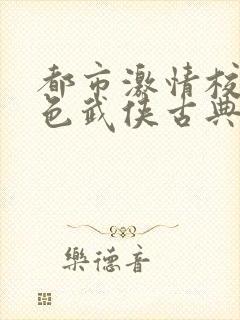 都市激情校
色武侠古典
樂德音